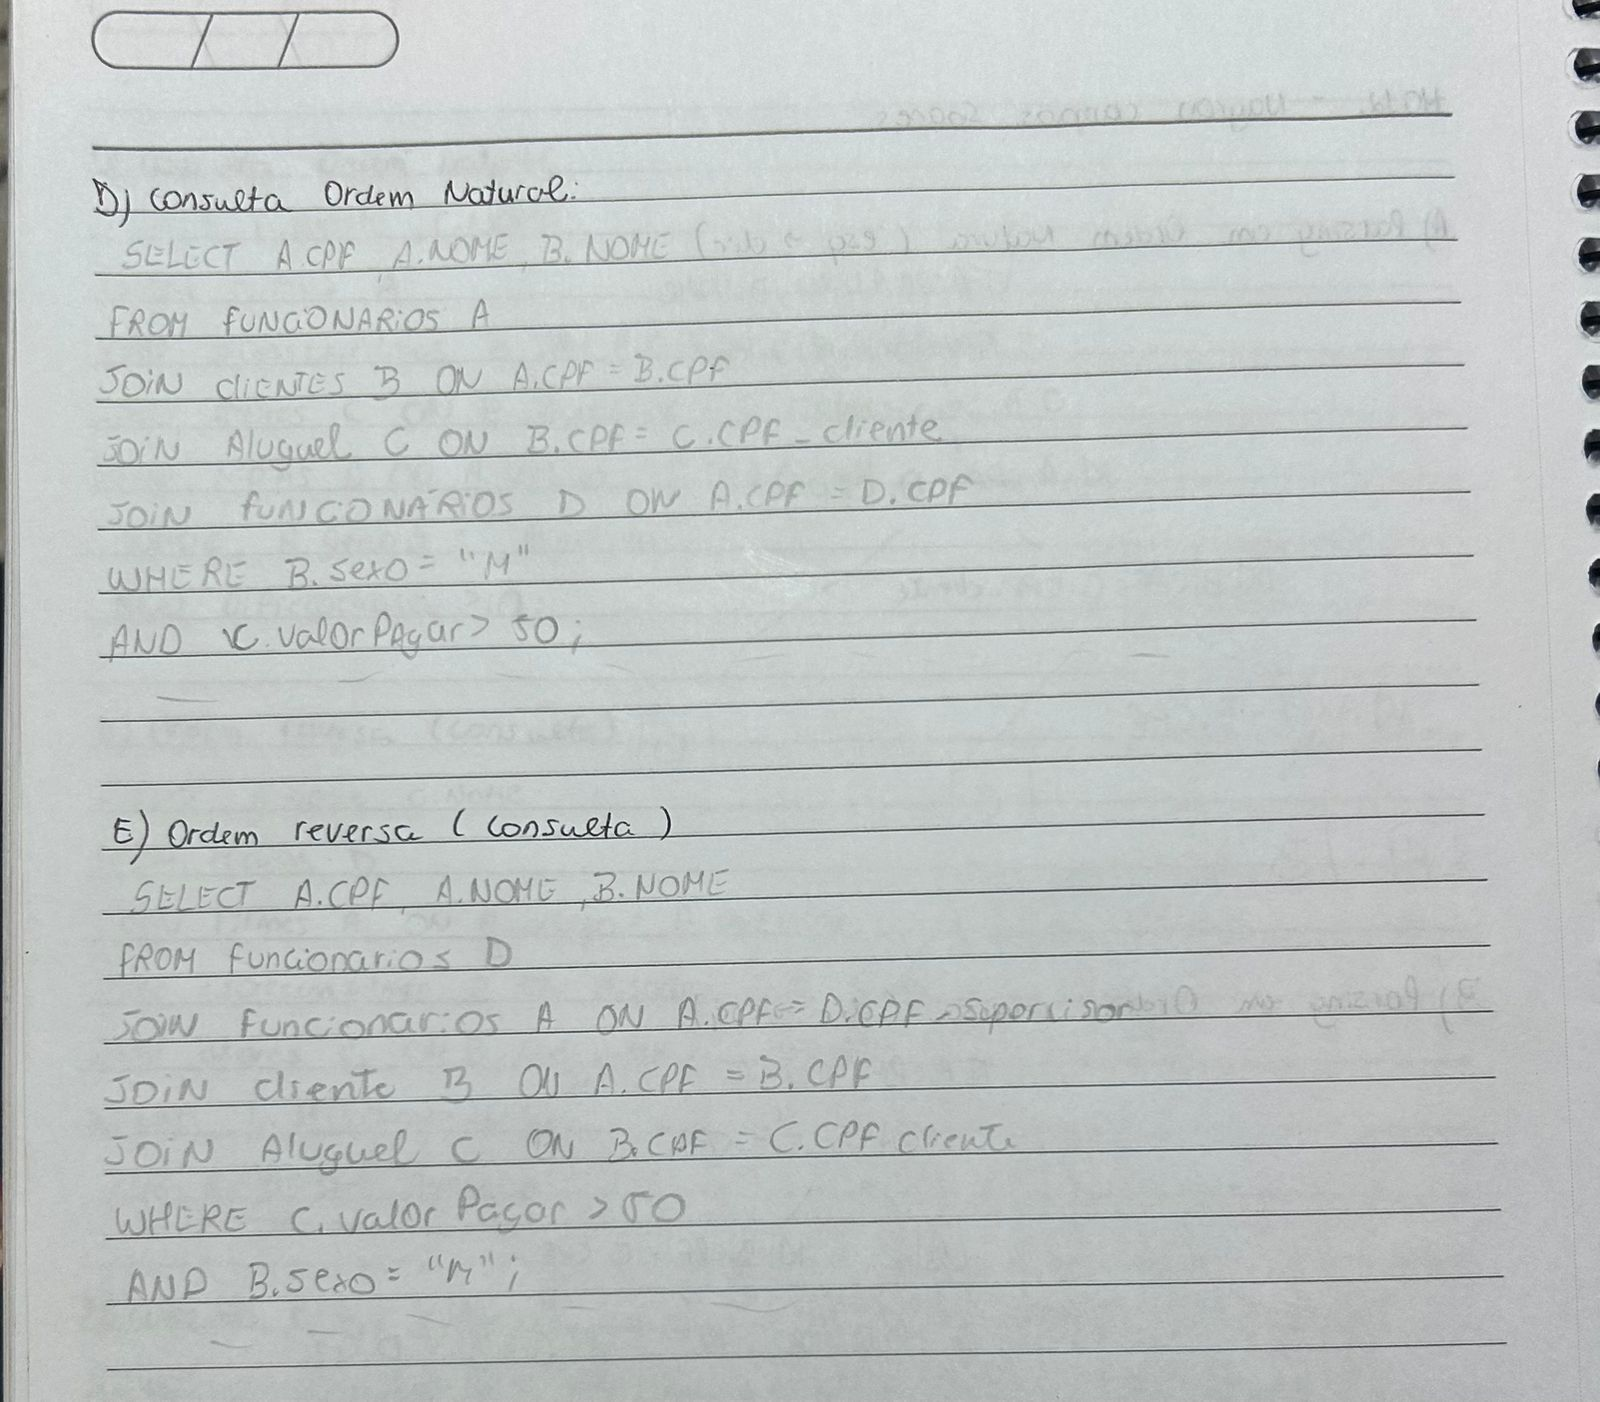 D) Consulta Ordem Natural:
SELECT A.CPF, A.NOME, B.NOME
FROM FUNCIONARIOS A
JOIN CLIENTES B ON A.CPF = B.CPF
JOIN Aluguel C ON B.CPF = C.CPF_cliente
JOIN FUNCONÁRIOS D ON A.CPF = D.CPF
WHERE B.sexo = "M"
AND C.valorPAgar > 50;
E) Ordem reversa (consulta)
SELECT A.CPF, A.NOME, B.NOME
FROM funcionarios D
JOIN funcionarios A ON A.CPF = D.CPF_supervisor
JOIN cliente B ON A.CPF = B.CPF
JOIN Aluguel C ON B.CPF = C.CPF cliente
WHERE C.valor Pagar > 50
AND B.sexo = "M";